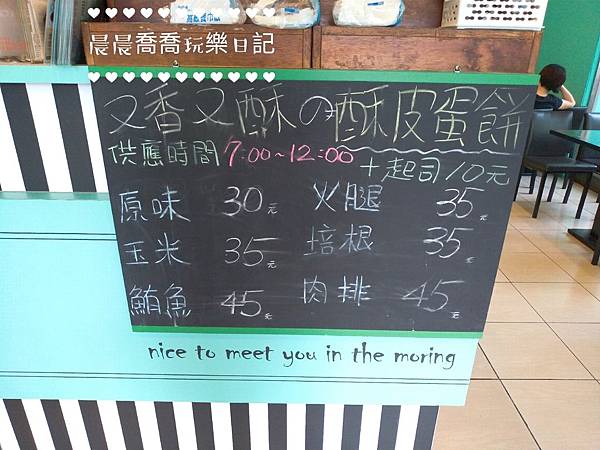 晨晨喬喬玩樂日記
又香又酥の酥皮蛋餅
供應時間 7:00~12:00
+起司10元
原味 30元 火腿 35元
玉米 35元 培根 35元
鮪魚 45元 肉排 45元
nice to meet you in the moring